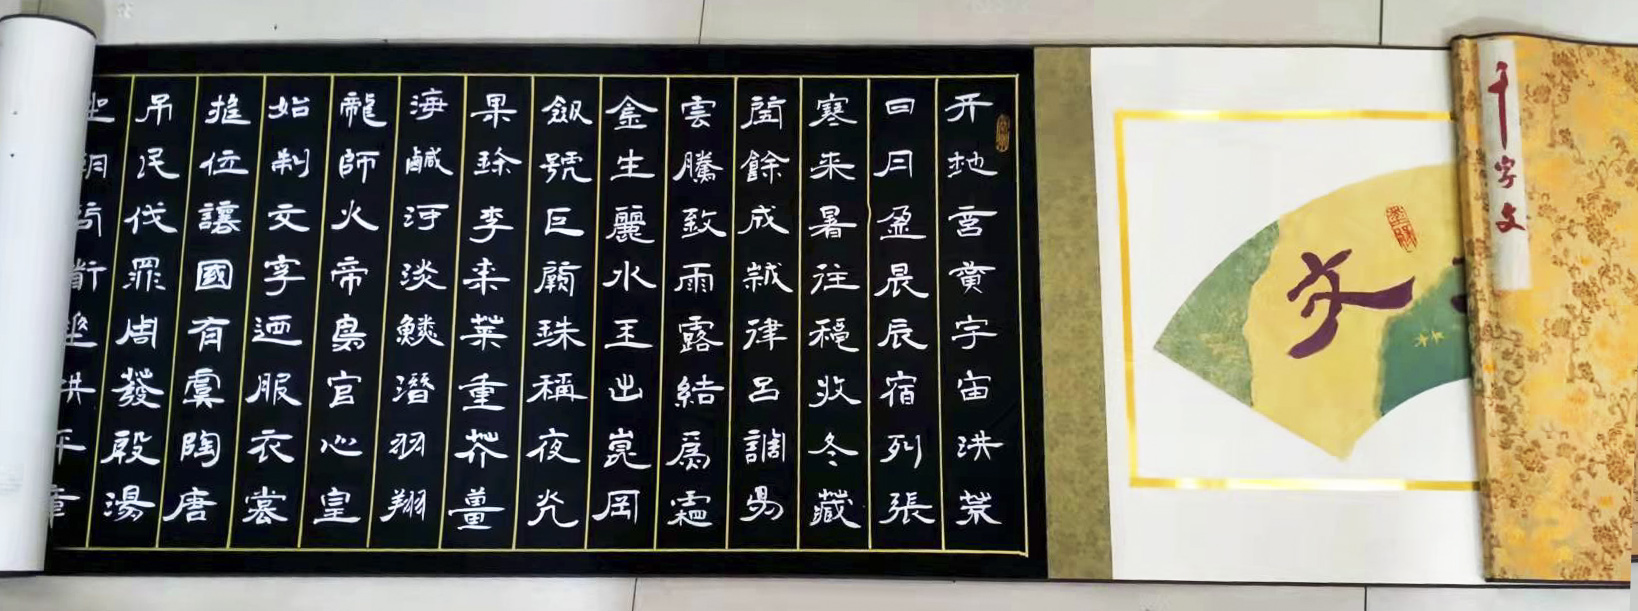 千字文
文
天地玄黃宇宙洪荒
日月盈昃辰宿列張
寒来暑往秋收冬藏
閏餘成歲律呂調陽
雲騰致雨露結爲霜
金生麗水玉出崑岡
劔號巨闕珠稱夜光
果珍李柰菜重芥薑
海鹹河淡鱗潛羽翔
龍師火帝鳥官人皇
始制文字迺服衣裳
推位讓國有虞陶唐
吊民伐罪周發殷湯
坐朝問道垂拱平章